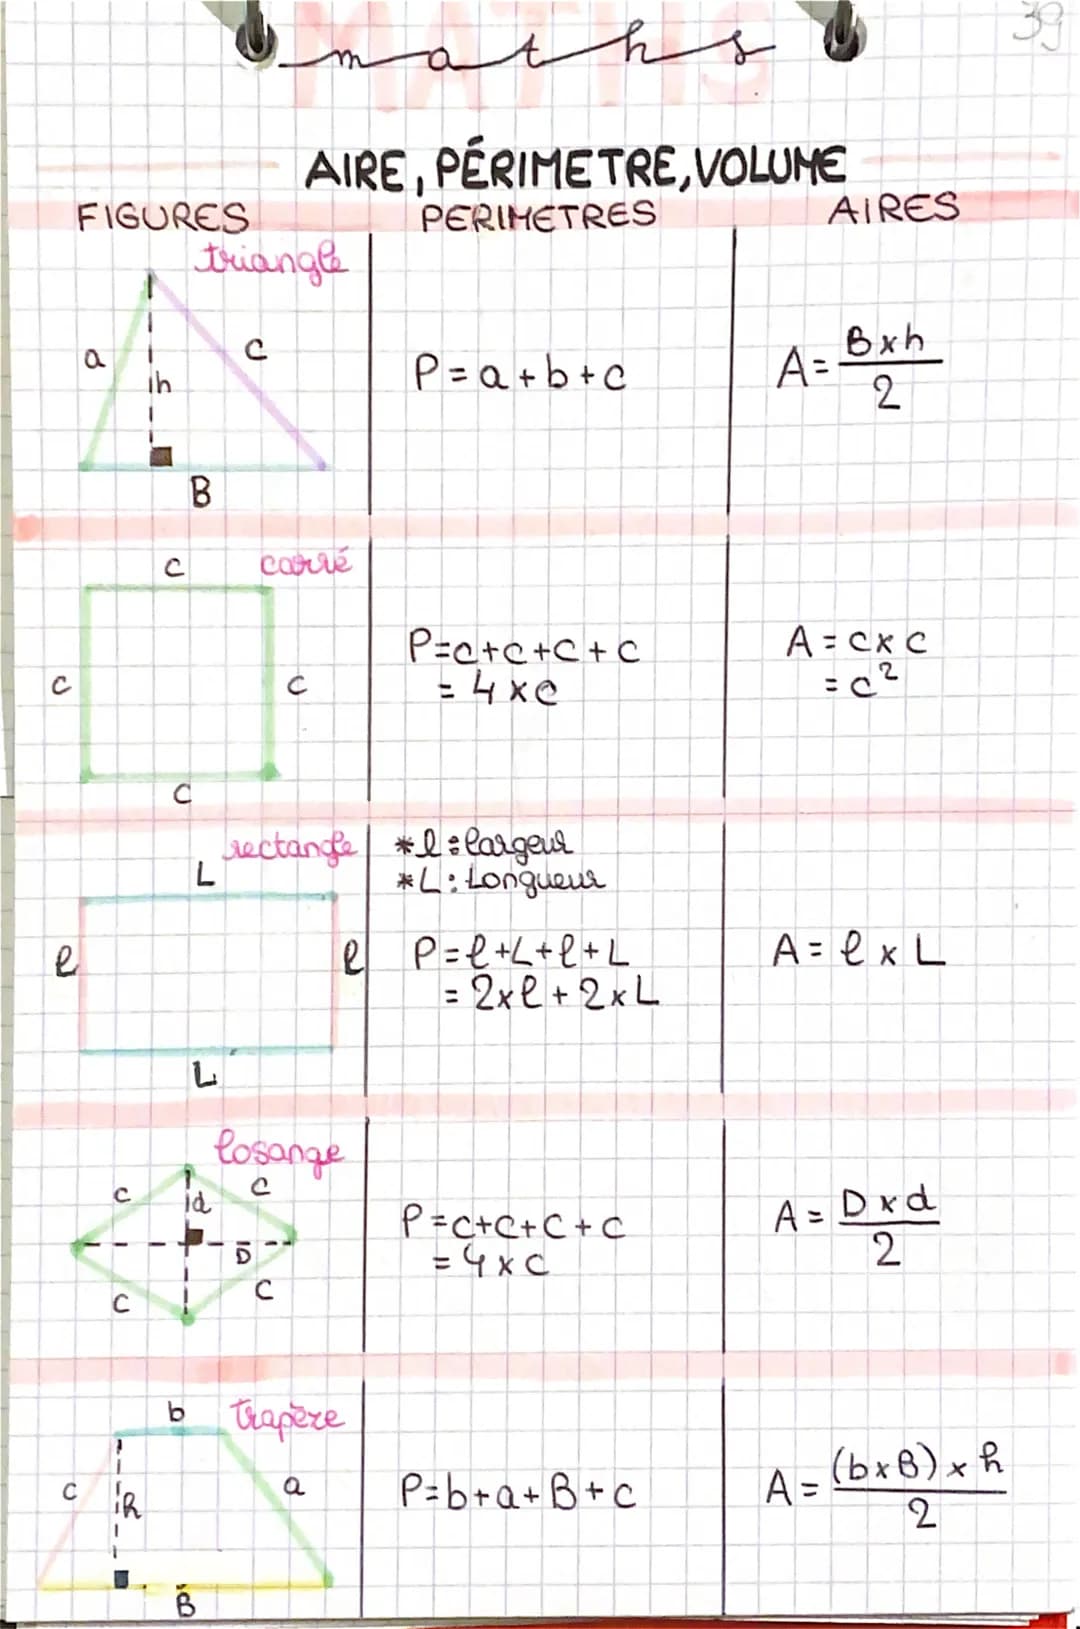 MATHS
maths
39
AIRE, PÉRIMETRE, VOLUME
FIGURES PERIMETRES AIRES
triangle
a
c
h
B
P = a + b + c
A = B x h / 2
carré
c
c
c
c
P = c + c + c + c
= 4 x c
A = c x c
= c²
rectangle
L
l
l
L
* l : largeur
* L : Longueur
P = l + L + l + L
= 2 x l + 2 x L
A = l x L
losange
c
d
c
D
c
c
P = c + c + c + c
= 4 x c
A = D x d / 2
trapèze
b
c
h
a
B
P = b + a + B + c
A = (b x B) x h / 2